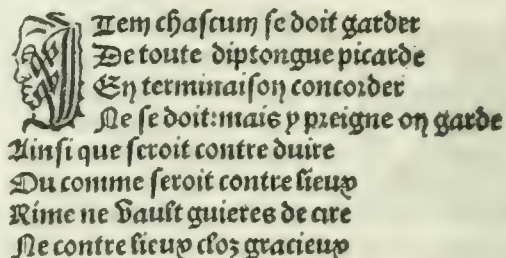 Item chascum se doit garder
De toute diptongue picarde
En terminaison concorder
Ne se doit: mais y preigne on garde
Ainsi que seroit contre duire
Ou comme seroit contre lieux
Rime ne vault guieres de cire
Ne contre lieux clos gracieux